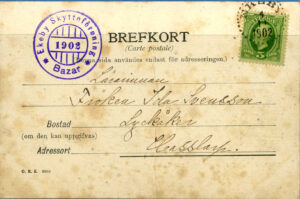 Ekeby Skytteförening
1902
Bazar
BREFKORT
(Carte postale)
sida användes endast för adresseringen.)
1902
5
Lärarinnan
Fröken Ida Svensson
Bostad
(om den kan uppgifvas)
Lyckåker
Adressort